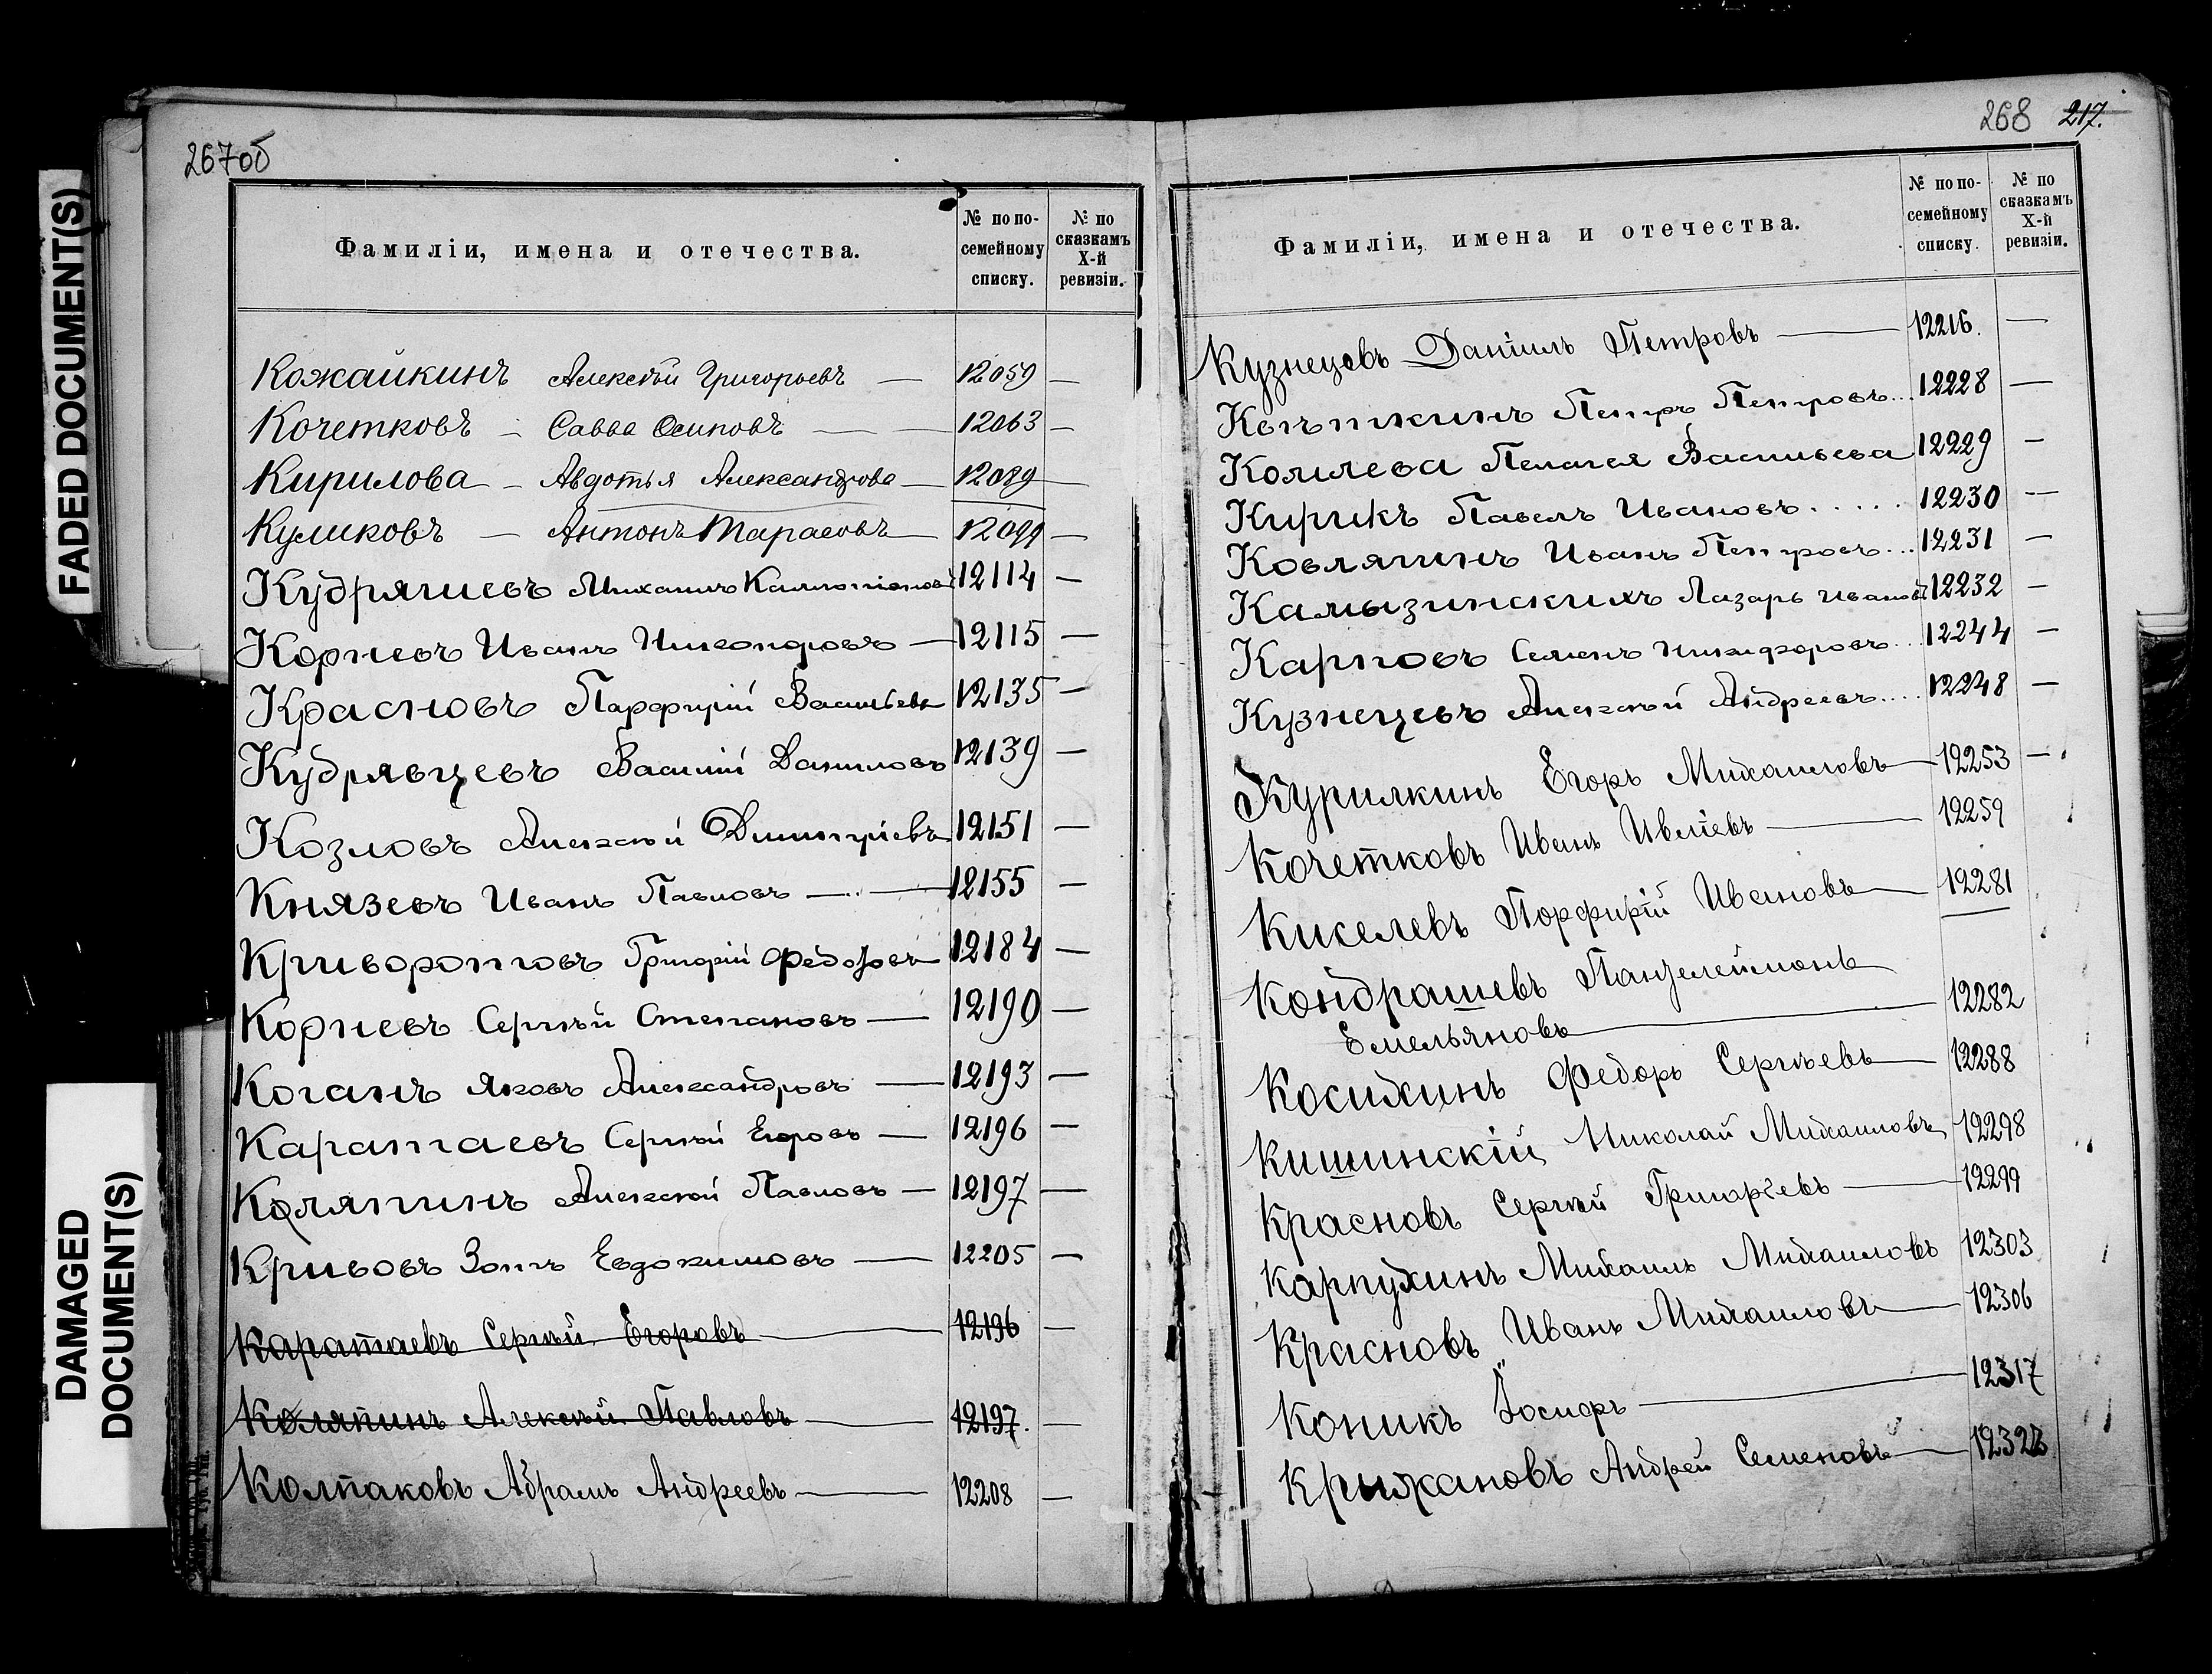 FADED DOCUMENT(S)
DAMAGED
DOCUMENT(S)
267об
Фамиліи, имена и отечества.
№ по по-
семейному
списку.
№ по
сказкамъ
X-й
ревизіи.
Кожайкинъ Алексѣй Григорьевъ — 12059 —
Кочетковъ — Савва Осиповъ — — 12063 —
Кирилова — Авдотья Александрова — 12089 —
Куликовъ — Антонъ Тарасовъ — 12099 —
Кудряшевъ Михаилъ 12114 —
Корневъ Иванъ Никоноровъ — 12115 —
Красновъ Парфирій Васильевъ 12135 —
Кудрявцевъ Василій Даниловъ 12139 —
Козловъ Алексѣй Дмитріевъ 12151 —
Князевъ Иванъ Павловъ — 12155 —
Криворотовъ Григорій Федоровъ 12184 —
Корневъ Сергѣй Степановъ — 12190 —
Коганъ Яковъ Александровъ — 12193 —
Каратаевъ Сергѣй Егоровъ — 12196 —
Коляпинъ Алексѣй Павловъ — 12197 —
Кривовъ Зотъ Евдокимовъ — 12205 —
Каратаевъ Сергѣй Егоровъ — 12196 —
Коляпинъ Алексѣй Павловъ — 12197. —
Колпаковъ Абрамъ Андреевъ — 12208 —
268 217.
Фамиліи, имена и отечества.
№ по по-
семейному
списку.
№ по
сказкамъ
X-й
ревизіи.
Кузнецовъ Даніилъ Петровъ — 12216. —
Петръ Петровъ... 12228 —
Пелагея Васильева 12229 —
Кирикъ Павелъ Ивановъ..... 12230 —
Ковляпинъ Иванъ Петровъ... 12231 —
Камызинскихъ Лазарь Ивановъ 12232 —
Карповъ Семенъ Никифоровъ... 12244 —
Кузнецовъ Алексѣй Андреевъ.... 12248 —
Курилкинъ Егоръ Михаиловъ — 12253 —
Кочетковъ Иванъ Ивліевъ — 12259
Киселевъ Порфирій Ивановъ — 12281
Кондрашевъ Панзелеймонъ
Емельяновъ — 12282
Косихинъ Федоръ Сергѣевъ — 12288
Кишинскій Николай Михаиловъ 12298
Красновъ Сергѣй Григорьевъ — 12299
Карпухинъ Михаилъ Михаиловъ 12303
Красновъ Иванъ Михаиловъ — 12306
Коникъ Іосифъ — 12317
Крыжановъ Андрей Семеновъ —